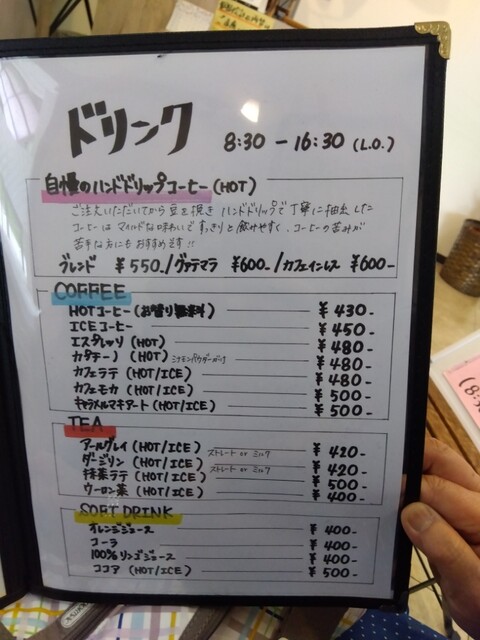 ドリンク 8:30 - 16:30 (L.O.)
自慢のハンドドリップコーヒー (HOT)
ご注文いただいてから豆を挽きハンドドリップで丁寧に抽出した
コーヒーはマイルドな味わいですっきりと飲みやすく、コーヒーの苦みが
苦手な方にもおすすめです!!
ブレンド ¥550./グァテマラ ¥600-/カフェインレス ¥600-
COFFEE
HOTコーヒー (お替り無料) ¥430-
ICEコーヒー ¥450-
エスプレッソ (HOT) ¥480-
カプチーノ (HOT) シナモンパウダーがけ ¥480-
カフェラテ (HOT/ICE) ¥480-
カフェモカ (HOT/ICE) ¥500-
キャラメルマキアート (HOT/ICE) ¥500-
TEA
アールグレイ (HOT/ICE) ストレート or ミルク ¥420-
ダージリン (HOT/ICE) ストレート or ミルク ¥420-
抹茶ラテ (HOT/ICE) ¥500-
ウーロン茶 (HOT/ICE) ¥400-
SOFT DRINK
オレンジジュース ¥400-
コーラ ¥400-
100%リンゴジュース ¥400-
ココア (HOT/ICE) ¥500-